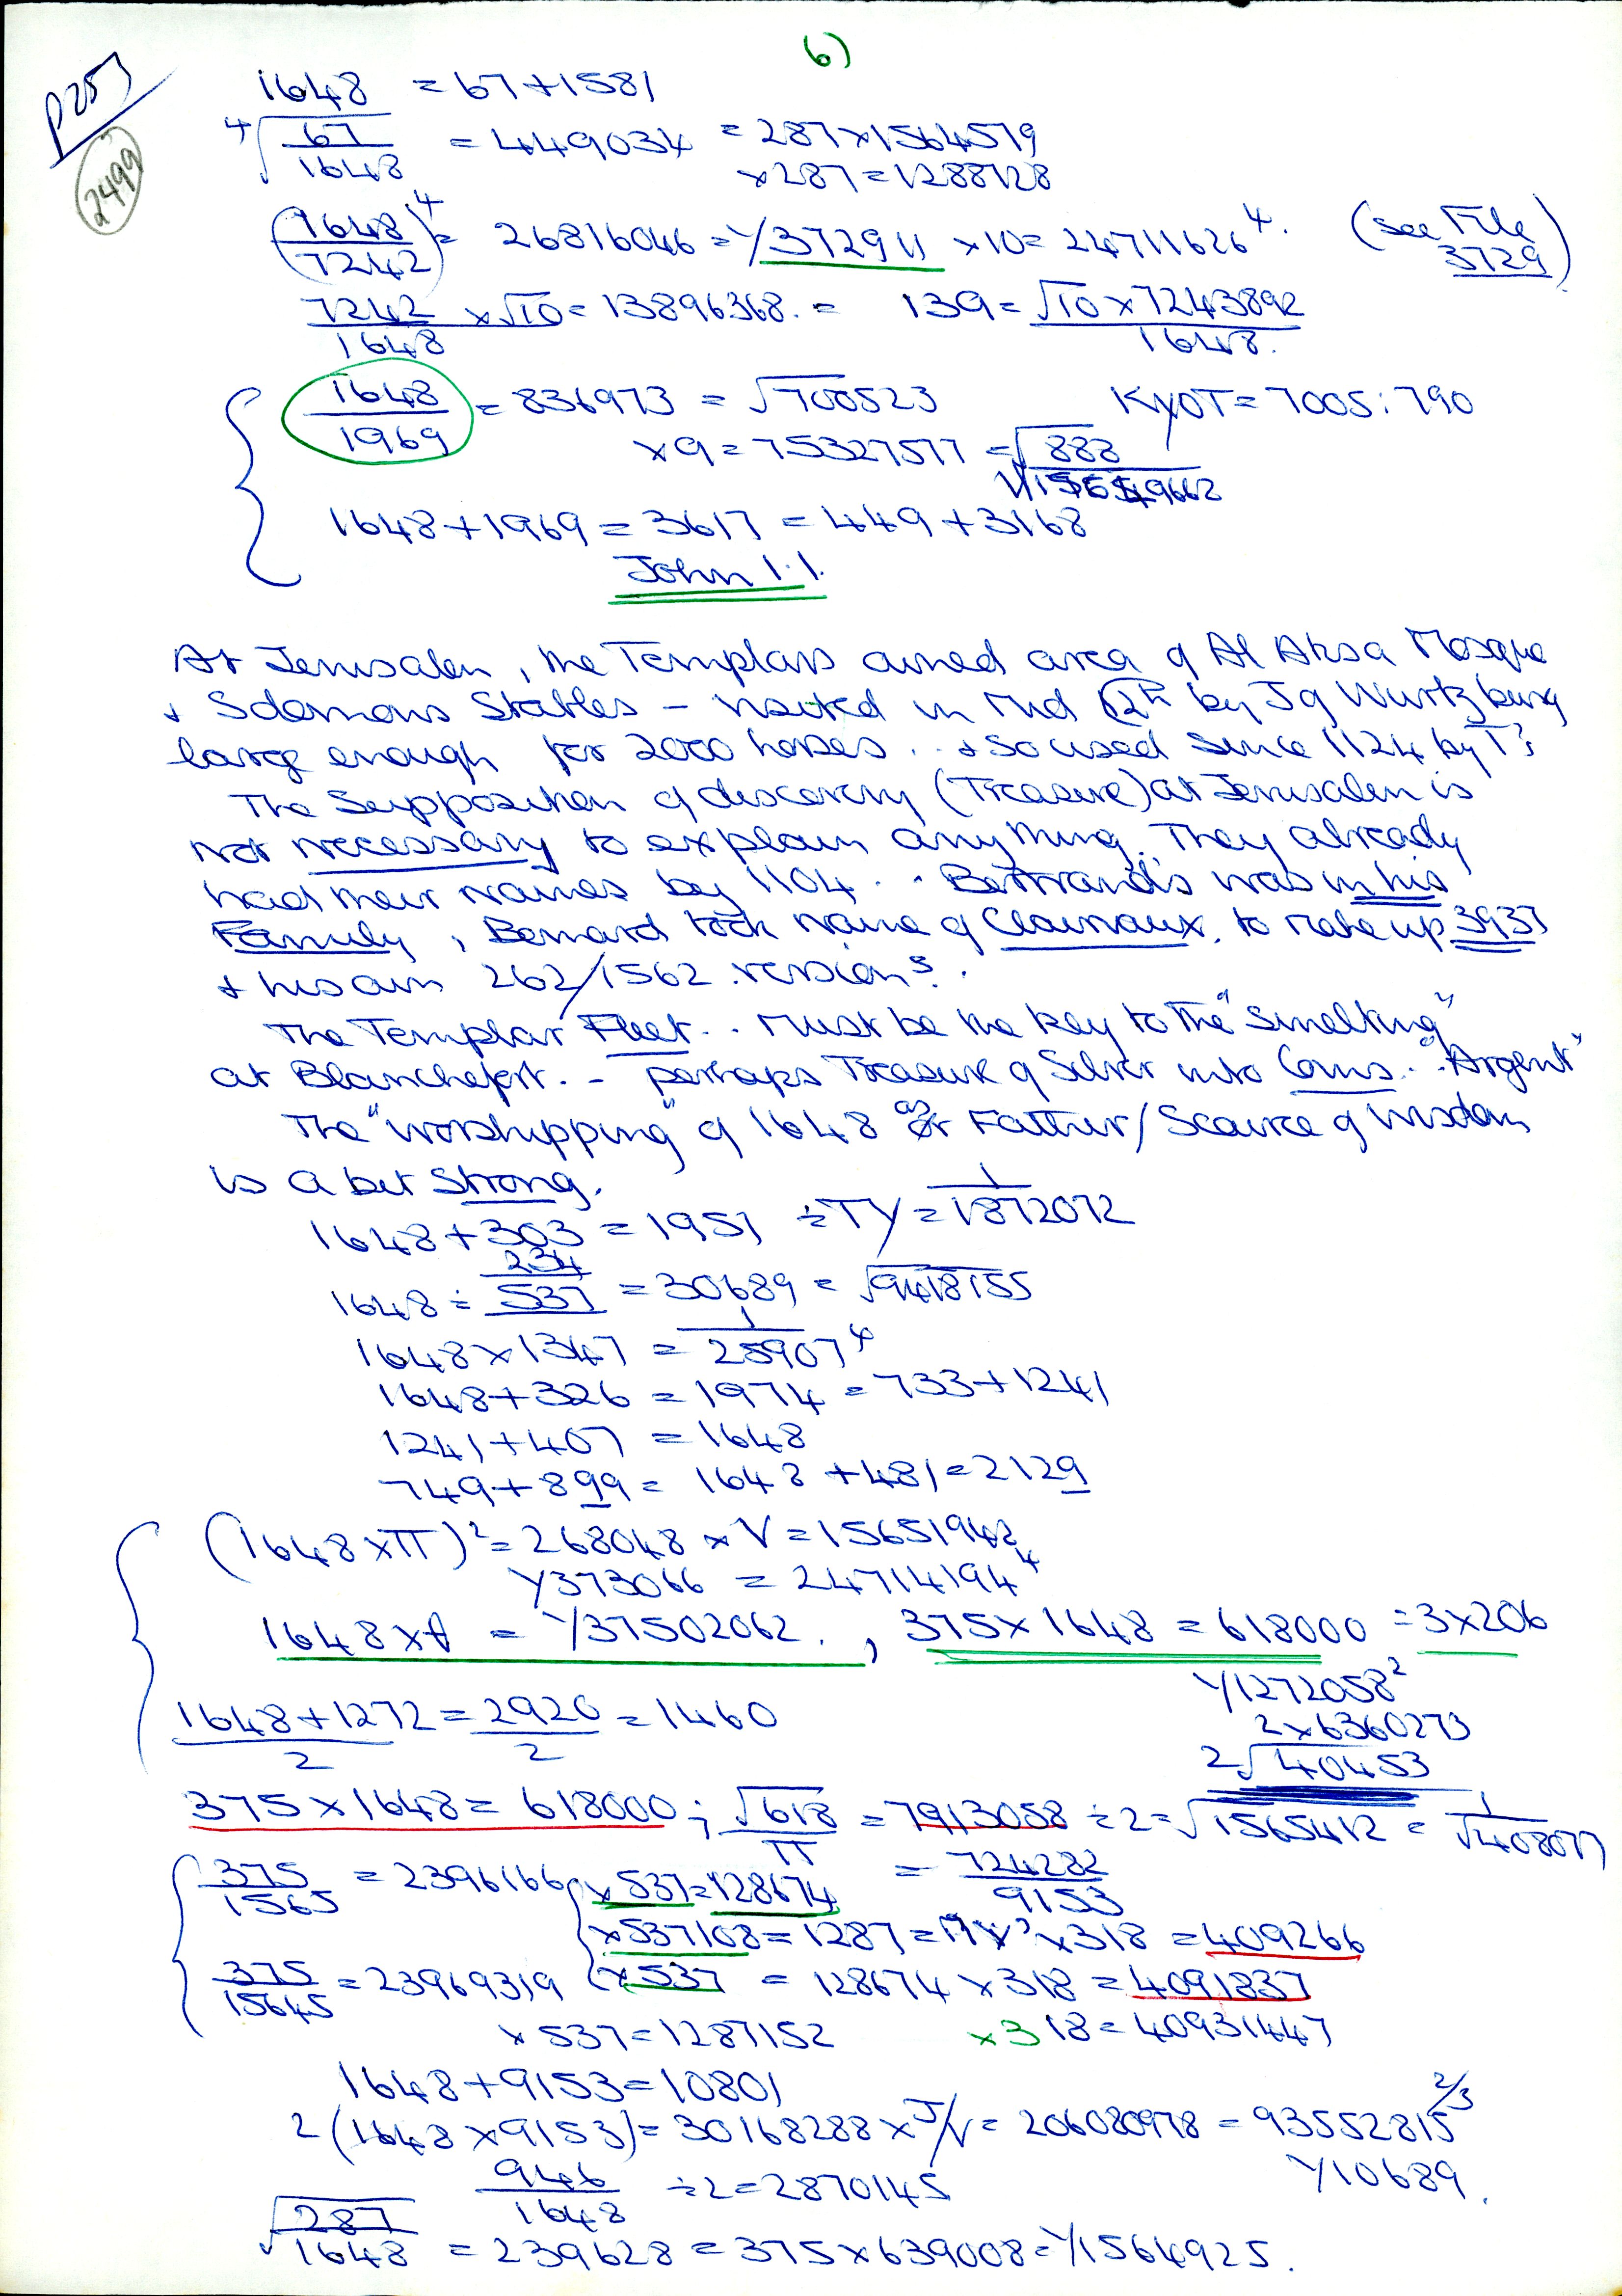 6)
P257
2499
1648 = 67+1581
4√67/1648 = 449034 = 287×1564579
×287=1288728
(1648/7242)^4 = 26816046 = 1/372911 ×10= 24711626^4. (See File 3729)
7242/1648 ×√10 = 13896368. = 139 = √10×7243892/1648.
1648/1969 = 836973 = √700523 KYOT = 7005:790
×9=75327577 = √888/
1648+1969=3617 = 449+3168
John 1.1.
At Jerusalem, the Templars owned area of Al Aksa Mosque
+ Solomons Stables – noted in Mid 12th by J of Wurtzburg
large enough for 2000 horses .. + so used since 1124 by T's
The Supposition of discovery (Treasure) at Jerusalem is
not necessary to explain anything. They already
had their names by 1104 .. Bertrand's was in his
Family, Bernard took name of Clairvaux, to make up 3937
+ his own 262/1562 versions.
The Templar Fleet .. Must be the key to the "Smelting"
at Blanchefort. – perhaps Treasure of Silver into Coins.. "Argent"
The "worshipping" of 1648 as Father/Source of Wisdom
is a bit strong.
1648+303 = 1951 ÷TY = 1/1872072
1648 ÷ 234/537 = 30689 = √9418155
1648×1347 = 1/25907^4
1648+326 = 1974 = 733+1241
1241+407 = 1648
749+899 = 1648 +481=2129
(1648×π)² = 268048 × V = 15651942
Y373066 = 24714194^4
1648× = Y37502062. , 375×1648 = 618000 = 3×206
Y1272058²
1648+1272/2 = 2920/2 = 1460
2×6360273
2√40453
375×1648= 618000 ; √618/π = 7913058 ÷2=√1565412 = 1/√408077
375/1565 = 2396166 ×537=128674 = 724282/9153
×537108=1287 = ×318 = 409266
375/15645 = 23969319 ×537 = 128674 ×318 = 4091837
×537=1287152 ×318=40931447
1648+9153=10801
2(1648×9153)= 30168288 × J/V = 206080978 = 93552815^2/3
946/1648 ÷2=2870145 Y10689.
√287/1648 = 239628 = 375×639008=Y1564925.